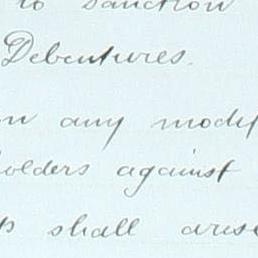 to sanction
Debentures.
any modif
olders against
shall arise